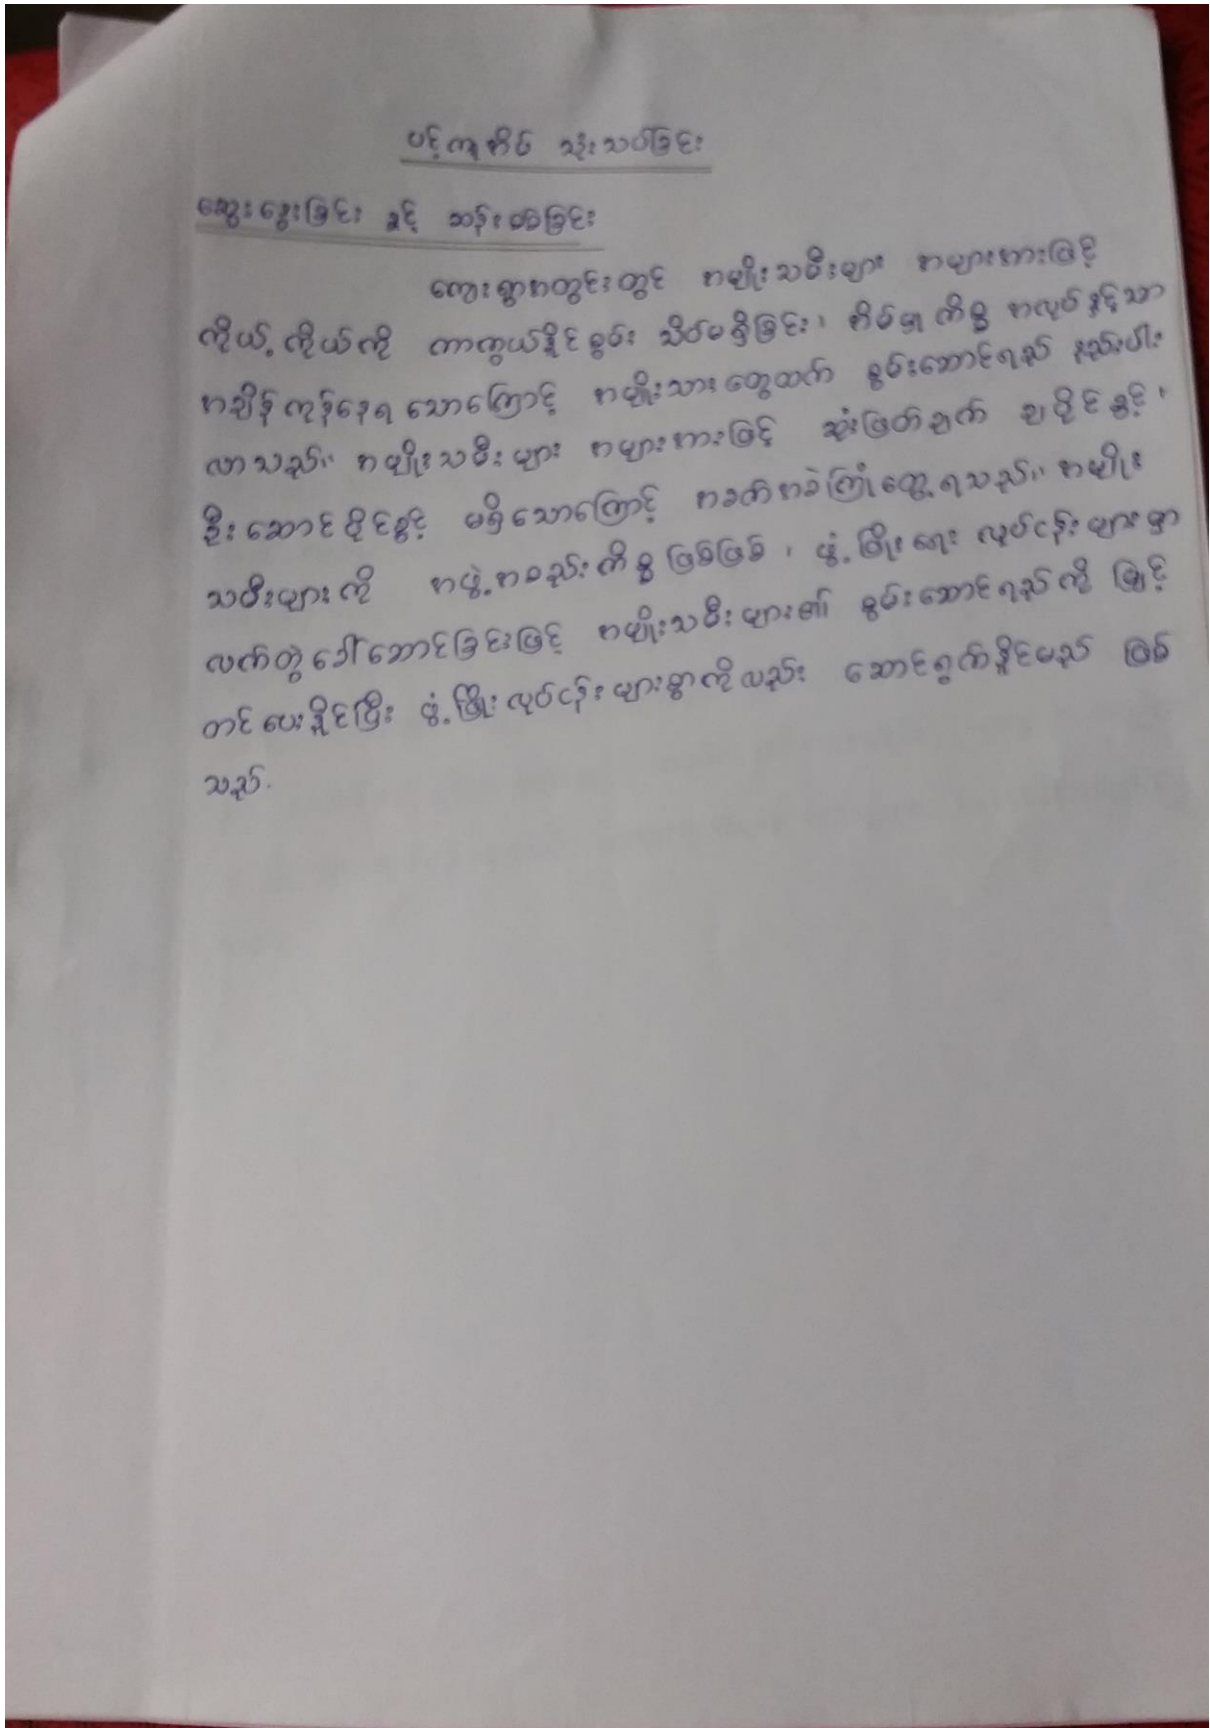 ပင့်ကူအိမ် သုံးသပ်ခြင်း
ဆွေးနွေးခြင်း နှင့် ဆန်းစစ်ခြင်း
ကျေးရွာအတွင်းတွင် အမျိုးသမီးများ အများအားဖြင့်
ကိုယ့်ကိုယ်ကို ကာကွယ်နိုင်စွမ်း သိပ်မရှိခြင်း၊ အိမ်မှုကိစ္စ အလုပ်နှင့်သာ
အချိန်ကုန်နေရသောကြောင့် အမျိုးသားတွေထက် စွမ်းဆောင်ရည် နည်းပါး
လာသည်။ အမျိုးသမီးများ အများအားဖြင့် ဆုံးဖြတ်ချက် ချပိုင်ခွင့်၊
ဦးဆောင်ပိုင်ခွင့် မရှိသောကြောင့် အခက်အခဲကြုံတွေ့ရသည်။ အမျိုး
သမီးများကို အဖွဲ့အစည်းကိစ္စဖြစ်ဖြစ်၊ ဖွံ့ဖြိုးရေး လုပ်ငန်းများစွာ
လက်တွဲခေါ်ဆောင်ခြင်းဖြင့် အမျိုးသမီးများ၏ စွမ်းဆောင်ရည်ကို မြှင့်
တင်ပေးနိုင်ပြီး ဖွံ့ဖြိုးလုပ်ငန်းများစွာကိုလည်း ဆောင်ရွက်နိုင်မည် ဖြစ်
သည်.